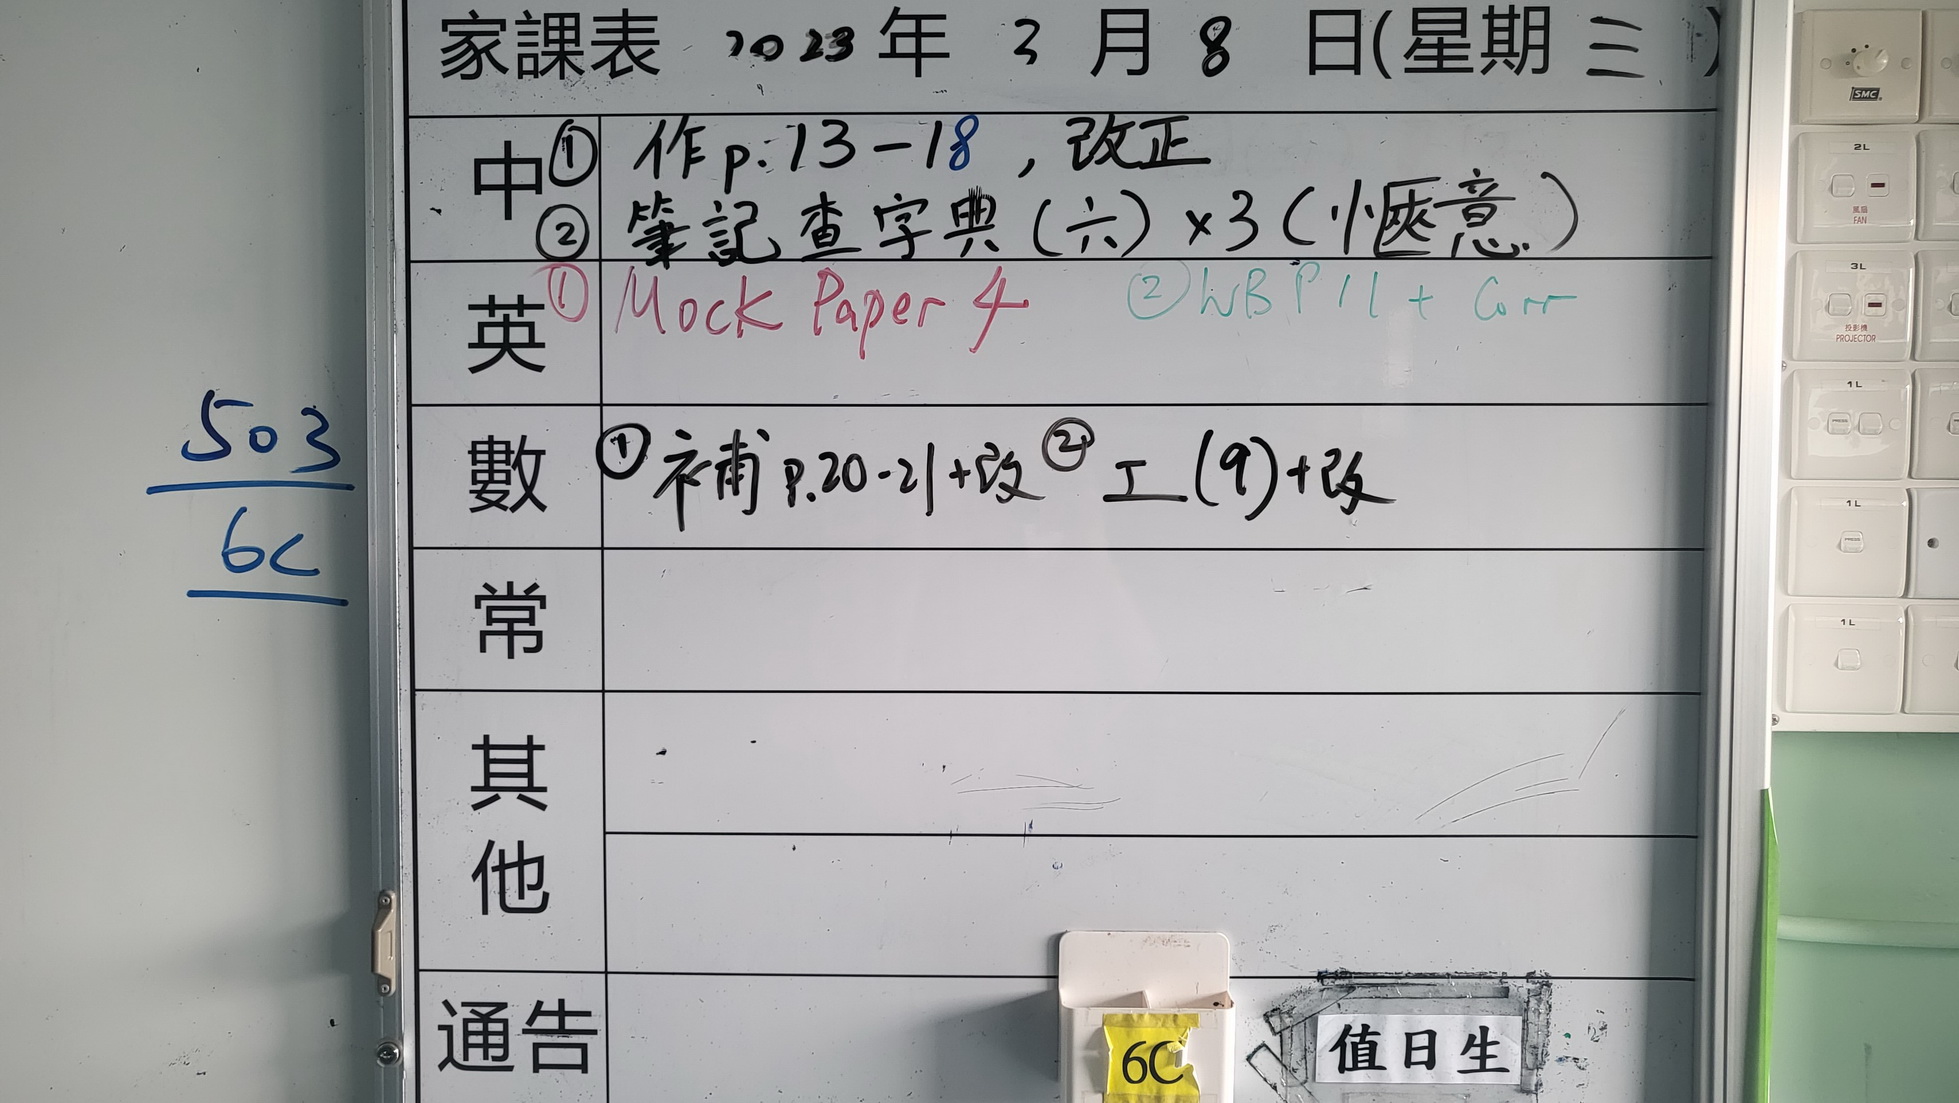 家課表 2023年 3月 8 日(星期三)
中 ① 作p.13-18,改正
② 筆記查字典(六)x3(愜意)
英 ① Mock Paper 4 ② WB P11 + Corr
數 ① 補p.20-21+改 ② 工(9)+改
常
其他
通告
503
6C
6C
值日生
SMC
2L
風扇
FAN
3L
投影機
PROJECTOR
1L
PRESS PRESS
1L
PRESS
1L